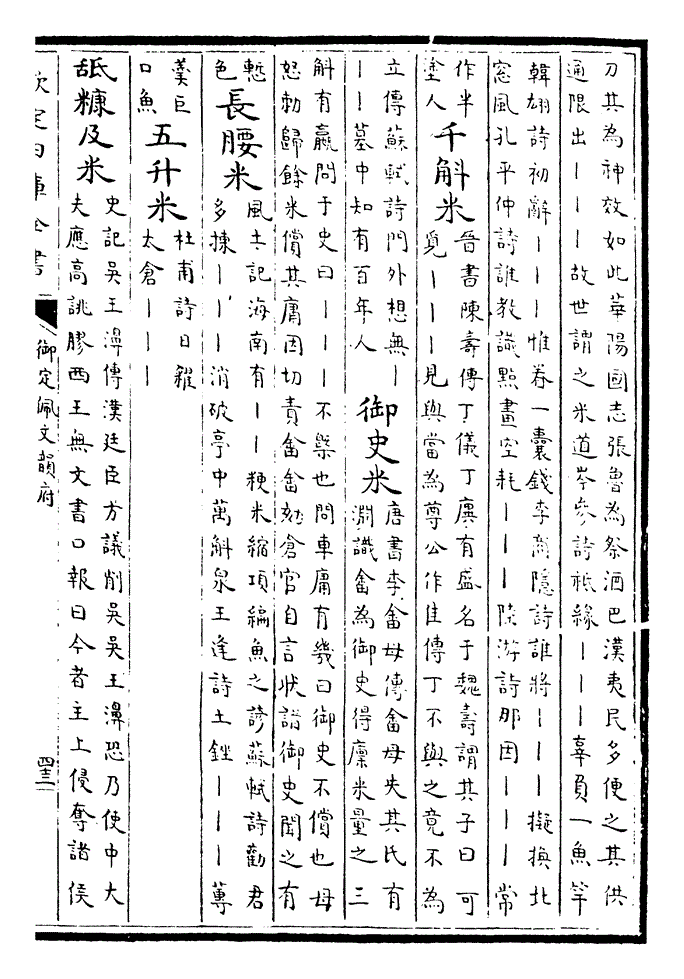 刀其為神效如此華陽國志張魯為祭酒巴漢夷民多便之其供
通限出丨丨丨故世謂之米道岑參詩秪緣丨丨丨辜負一魚竿
韓翃詩初辭丨丨丨惟卷一囊錢李商隱詩誰將丨丨丨擬換北
窓風孔平仲詩誰教識點畫空耗丨丨丨陸游詩那因丨丨丨常
作半
塗人
千斛米
晉書陳壽傳丁儀丁廙有盛名于魏壽謂其子曰可
覓丨丨丨見與當為尊公作佳傳丁不與之竟不為
立傳蘇軾詩門外想無丨
丨丨墓中知有百年人
御史米
唐書李畬母傳畬母失其氏有
淵識畬為御史得廩米量之三
斛有贏問于史曰丨丨丨不槩也問車庸有幾曰御史不償也母
怒勅歸餘米償其庸因切責畬畬劾倉官自言狀諸御史聞之有
慙
色
長腰米
風土記海南有丨丨粳米縮項編魚之諺蘇軾詩勸君
多揀丨丨丨消破亭中萬斛泉王逢詩土銼丨丨丨蓴
羮巨
口魚
五升米
杜甫詩日糴
太倉丨丨丨
舐糠及米
史記吳王濞傳漢廷臣方議削吳吳王濞恐乃使中大
夫應高誂膠西王無文書口報曰今者主上侵奪諸侯
欽定四庫全書
御定佩文韻府
四三